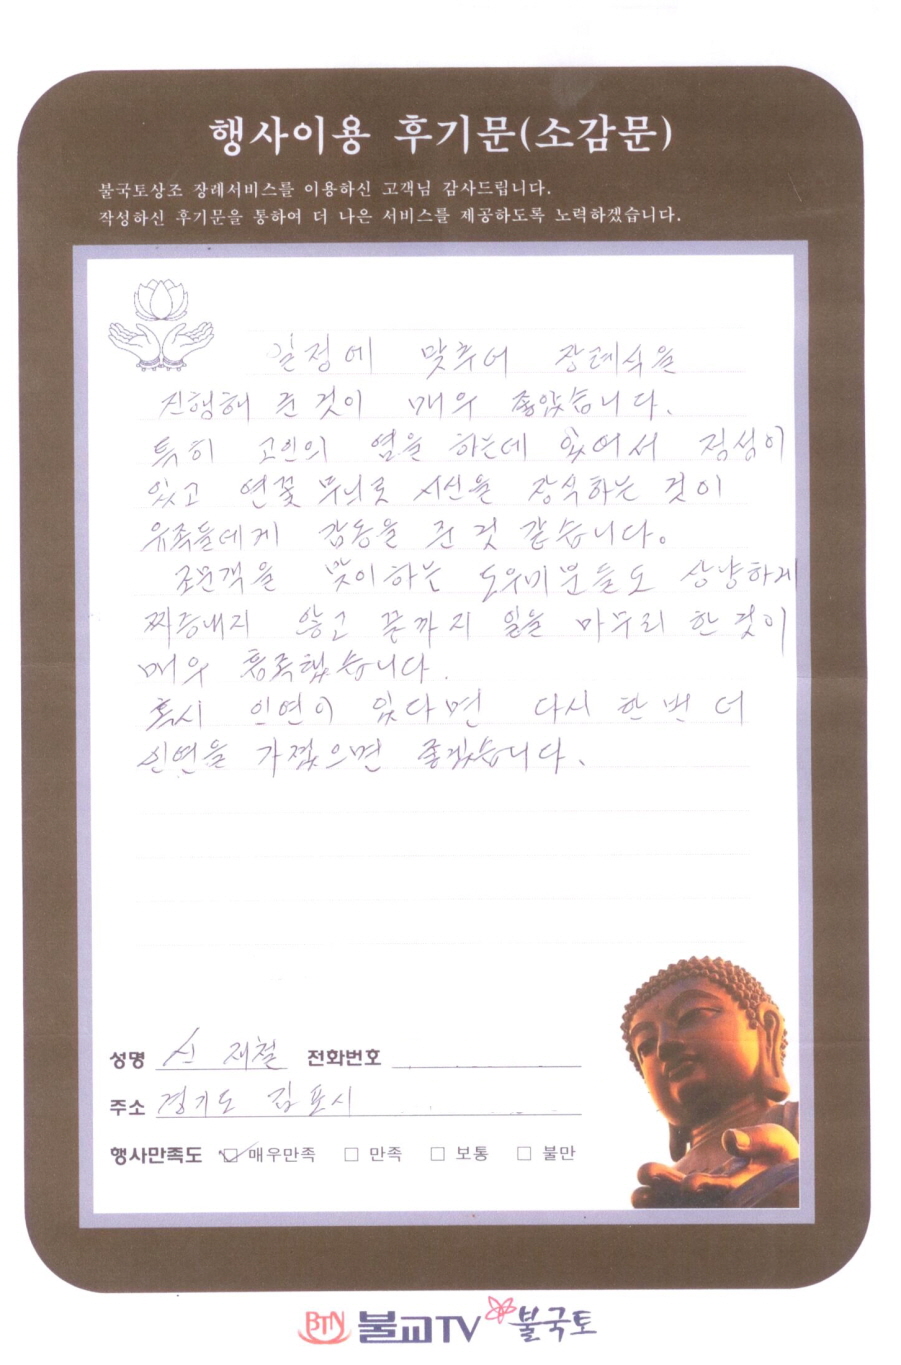 행사이용 후기문(소감문)
불국토상조 장례서비스를 이용하신 고객님 감사드립니다.
작성하신 후기문을 통하여 더 나은 서비스를 제공하도록 노력하겠습니다.
일정에 맞추어 장례식을
진행해 준 것이 매우 좋았습니다.
특히 고인의 염을 하는데 있어서 정성이
있고 연꽃 무늬로 시신을 장식하는 것이
유족들에게 감동을 준 것 같습니다.
조문객을 맞이하는 도우미분들도 상냥하게
짜증내지 않고 끝까지 일을 마무리 한 것이
매우 흡족했습니다.
혹시 인연이 있다면 다시 한번 더
인연을 가졌으면 좋겠습니다.
성명 신재철 전화번호
주소 경기도 김포시
행사만족도 매우만족 만족 보통 불만
BTN 불교TV 불국토